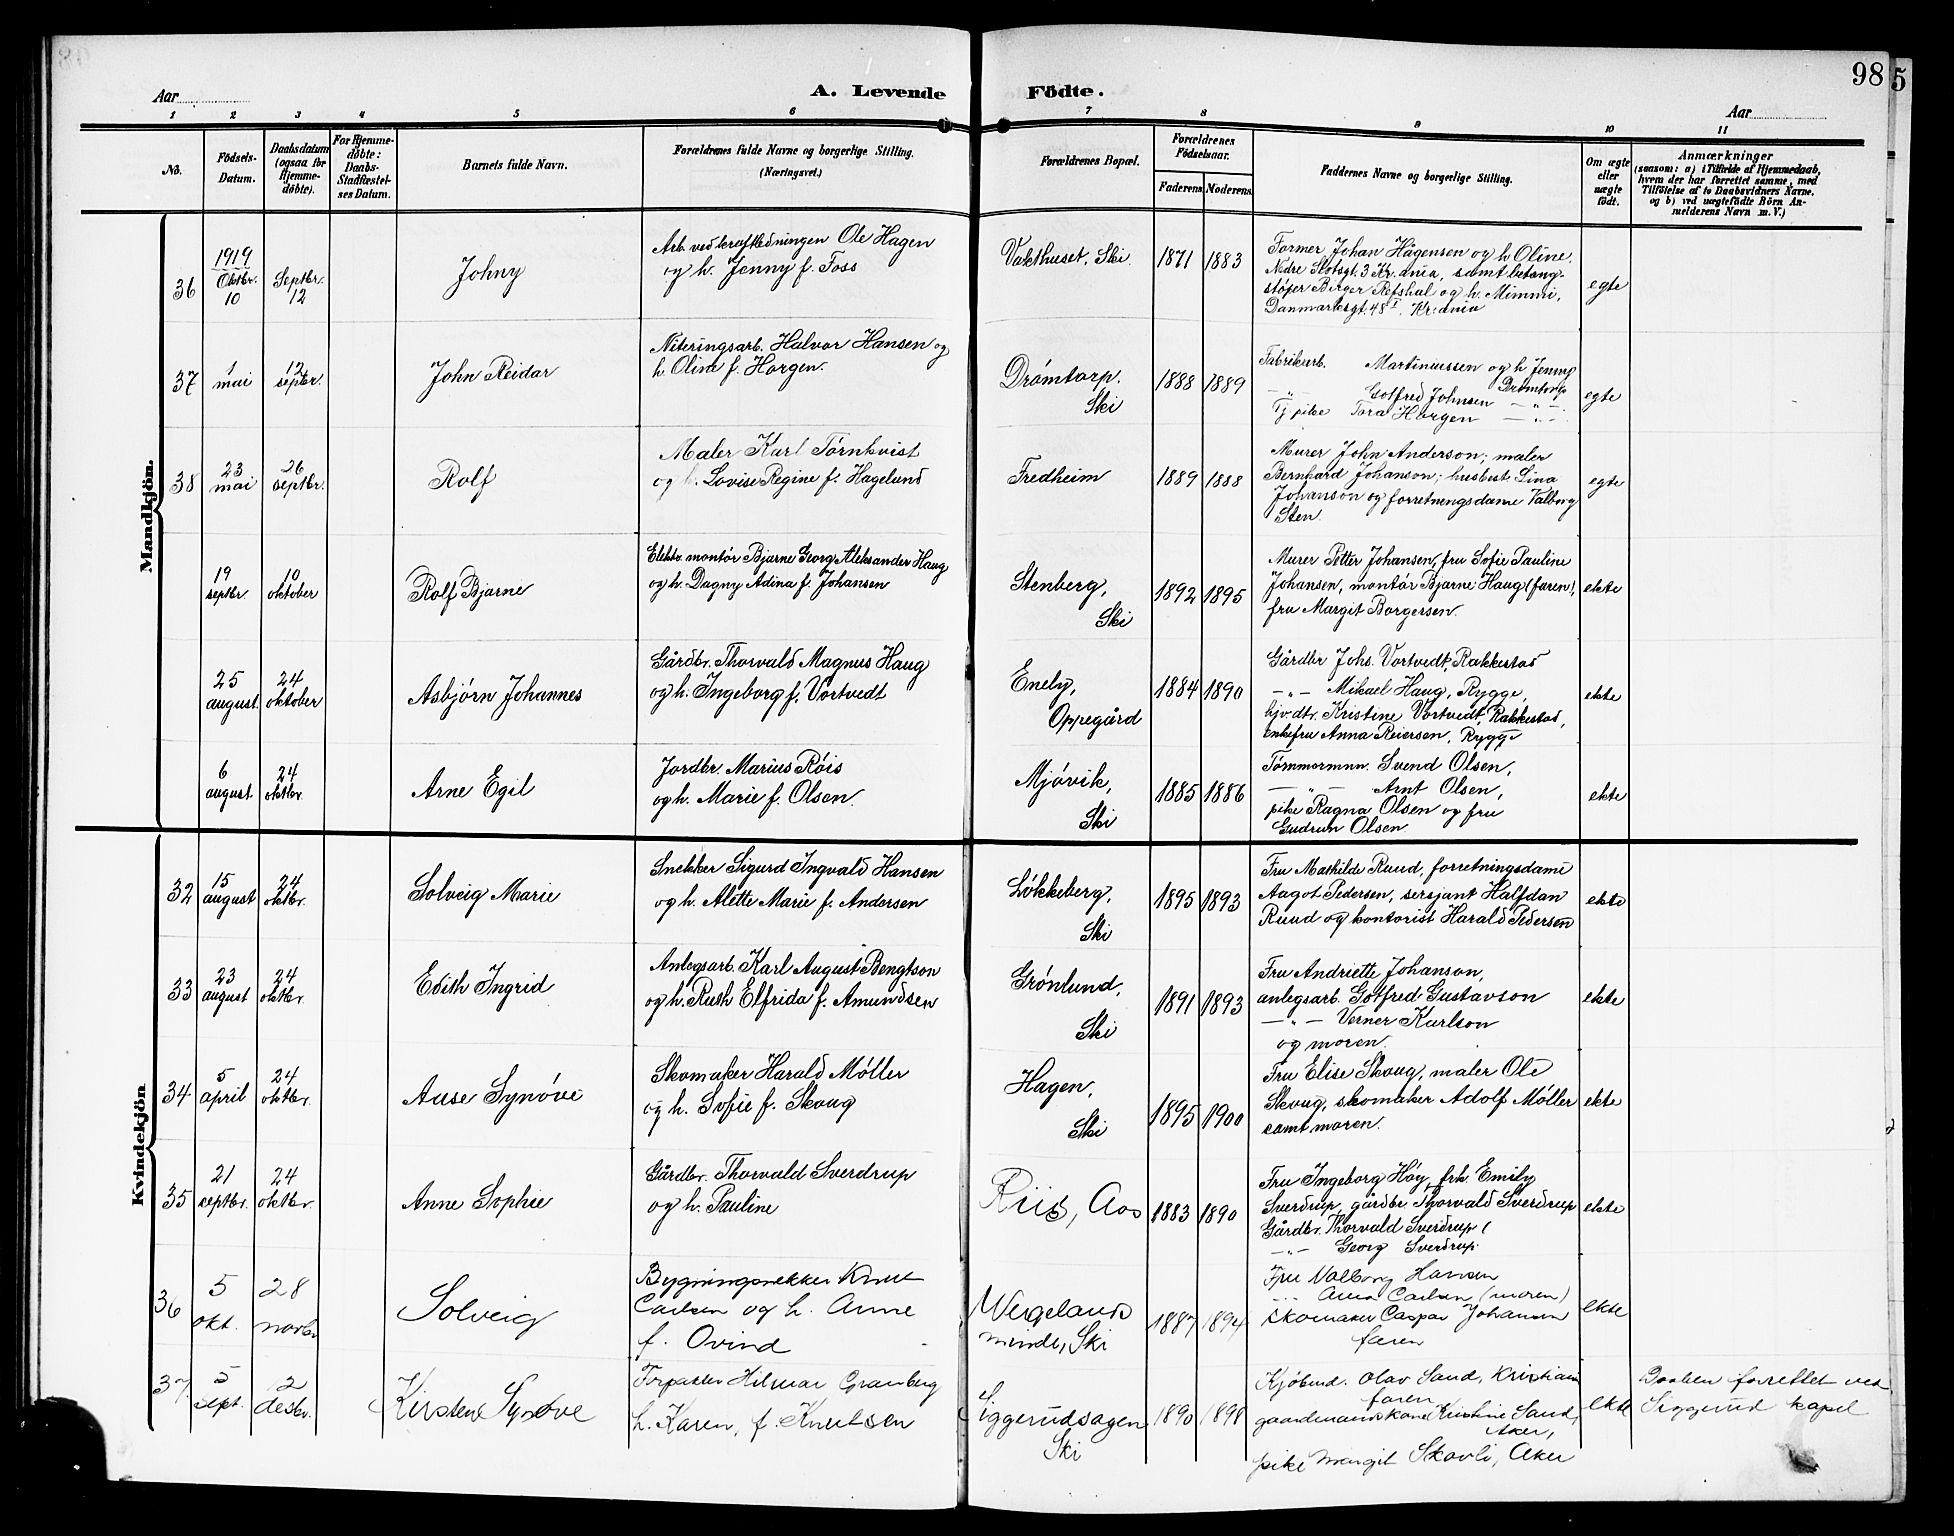 98
5
Aar
A. Levende
Födte.
Aar
1 2 3 4 5 6 7 8 9 10 11
No.
Födsels-
Datum.
Daabsdatum
(ogsaa for
Hjemme-
döbte).
For Hjemme-
döbte:
Daabs-
Stadfæstel-
ses Datum.
Barnets fulde Navn.
Forældrenes fulde Navne og borgerlige Stilling.
(Næringsvei.)
Forældrenes Bopæl.
Forældrenes
Födselsaar.
Faderens
Moderens
Faddernes Navne og borgerlige Stilling.
Om ægte
eller
uægte
födt.
Anmærkninger
(saasom: a) i Tilfælde af Hjemmedaab,
hvem der har forrettet samme, med
Tilföielse af to Daabsvidners Navne.
og b) ved uægtefödte Börn An-
melderens Navn m. V.)
Mandkjön.
36
1919
Oktbr.
10
Septbr.
12
Johny
Arb. ved kraftledningen Ole Hagen
og h. Jenny f. Foss
Vakthuset, Ski.
1871 1883
Former Johan Hågensen og h. Oline.
Nedre Slotsgt. 3 Kr.ania, samt betong-
støper Birger Refshal og h. Mimmi,
Danmarksgt. 48 I. Kr.ania
egte
37
1
mai
12
septbr.
John Reidar
Niteringsarb. Halvor Hansen og
h. Oline f. Horgen.
Drømtorp.
Ski
1888 1889
Fabrikarb. Martiniussen og h. Jenny
Drømtorp
—"— Gotfred Johnsen —"—
Tj.pike Tora Horgen —"—
egte
38
23
mai
26
septbr.
Rolf
Maler Karl Törnkvist
og h. Lovise Regine f. Hagelund
Fredheim
1889 1888
Murer John Anderson; maler
Bernhard Johanson; husbest. Lina
Johanson og forretnengsdame Valborg
Sten.
egte
19
septbr
10
oktober
Rolf Bjarne
Elektr. montør Bjarne Georg Aleksander Haug
og h. Dagny Adina f. Johansen
Stenberg,
Ski
1892 1895
Murer Petter Johansen, fru Sofie Pauline
Johansen, montør Bjarne Haug (faren),
fru Margit Borgersen.
ekte
25
august.
24
oktober
Asbjörn Johannes
Gårdbr. Thorvald Magnus Haug
og h. Ingeborg f. Vortvedt
Enely,
Oppegård
1884 1890
Gårdbr Johs. Vortvedt, Rakkestad
—"— Mikael Haug, Rygge,
hjv. dtr. Kristine Vortvedt, Rakkestad,
enkefru Anna Reiersen, Rygge
ekte
6
august
24
oktbr.
Arne Egil
Jordbr. Marius Röis
og h. Marie f. Olsen.
Mjövik,
Ski
1885 1886
Tömmermnn. Svend Olsen,
—"— Arnt Olsen,
pike Ragna Olsen og fru
Gudrun Olsen
ekte
Kvindekjön
32
15
august
24
oktbr.
Solveig Marie
Snekker Sigurd Ingvald Hansen
og h. Alette Marie f. Andersen
Løkkeberg,
Ski
1895 1893
Fru Mathilde Ruud, forretningsdame
Aagot Pedersen, sersjant Halfdan
Ruud og kontorist Harald Pedersen
ekte
33
23
august
24
oktbr.
Edith Ingrid
Anlegsarb. Karl August Bengtson
og h. Ruth Elfrida f. Amundsen
Grønlund,
Ski
1891 1893
Fru Andriette Johanson,
anlegsarb. Gotfred Gustavson
—"— Verner Karlson
og moren.
ekte
34
5
april
24
oktbr.
Aase Synöve
Skomaker Harald Møller
og h. Sofie f. Skoug
Hagen,
Ski
1895 1900
Fru Elise Skoug, maler Ole
Skoug, skomaker Adolf Møller
samt moren.
ekte
35
21
septbr.
24
oktbr.
Anne Sophie
Gårdbr. Thorvald Sverdrup
og h. Pauline
Riis, Aas
1883 1890
Fru Ingeborg Høy, frk. Emily
Sverdrup, gårdbr Thorvald Sverdrup
Gårdbr. Thorvald Sverdrup (
—"— Georg Sverdrup.
ekte
36
5
okt.
28
novbr
Solveig
Bygningsnekker Knut
Carlsen og h. Anne
f. Ovind
Wergelands
minde, Ski
1887 1894
Fru Valborg Hansen
" Anna Carlsen (moren)
Skomaker Caspar Johansen
faren
ekte
37
5
sept.
2
desbr.
Kirsten Synøve
Forpakter Hilmar Granberg
h. Karen, f. Knutsen
Siggerudsagen
Ski
1890 1898
Kjøbmd. Olav Sand, Kristiania
faren
gaardmandskone Kristine Sand,
Aker,
pike Margit Skovli, Aker
ekte
Daaben forrettet ved
Siggerud kapel